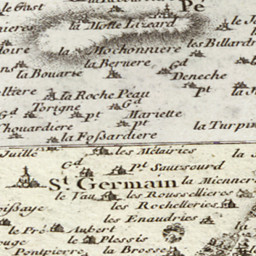 le Gast
Pe
la Motte Lizard
la Mochonniere
les Billard
la Beruere
la Bouarie
Gd
Deneche
pt
la Roche Peau
Torigne
Gd
pt
Mariette
pt
Chouardiere
la Turpin
la Foſsardiere
Juille
les Métairies
Gd
Pt Sautsourd
St. Germain
la Mienner
le Tau
les Roussellieres
les Rochelleries
les Enaudries
le Pré
Aubert
le Plessis
Pontpierre
la Brosse